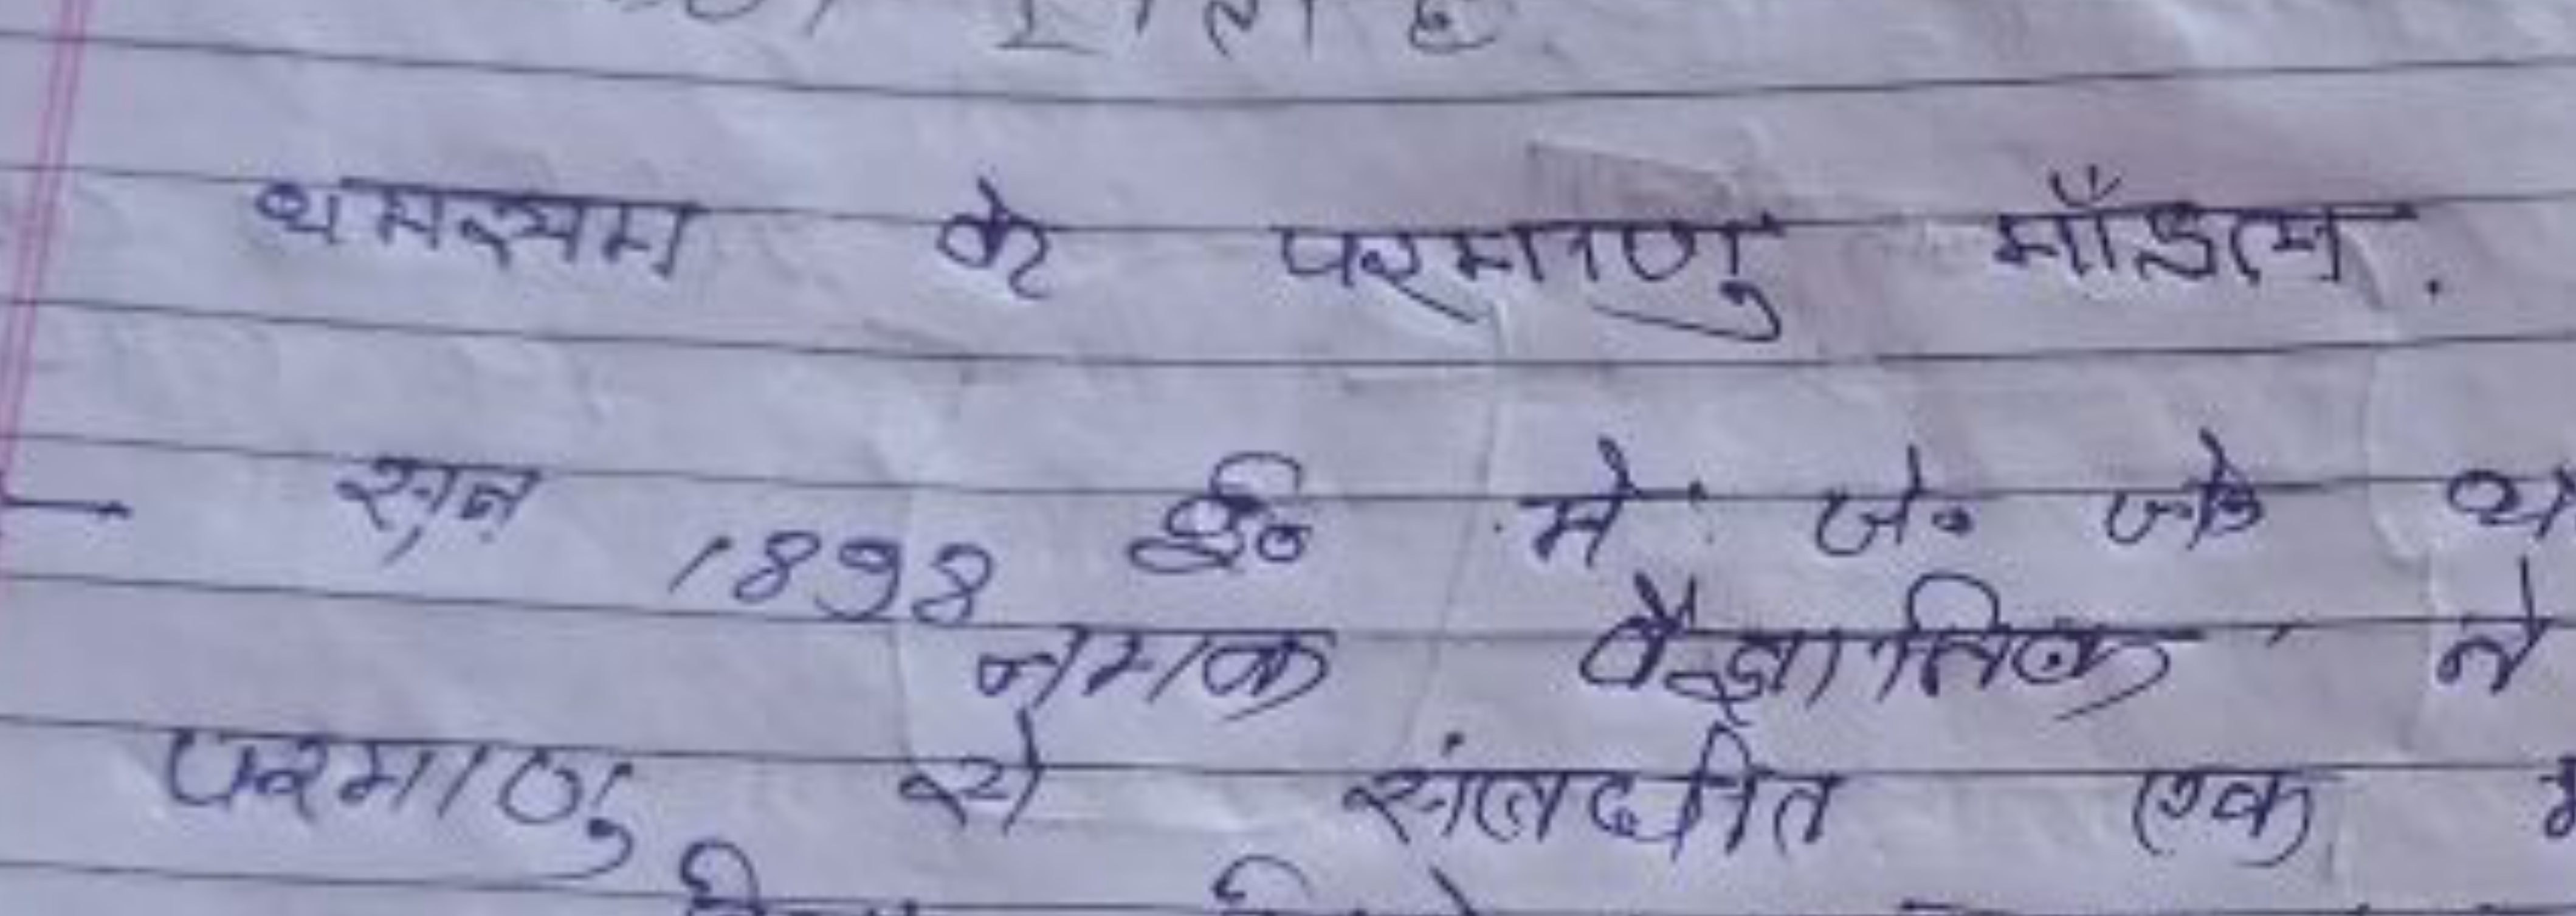 थमसम के परमाणु मॉडल.
सन् 1898 ई० में जे० जे०
नमक वैज्ञानिक ने
परमाणु से संबधीत एक